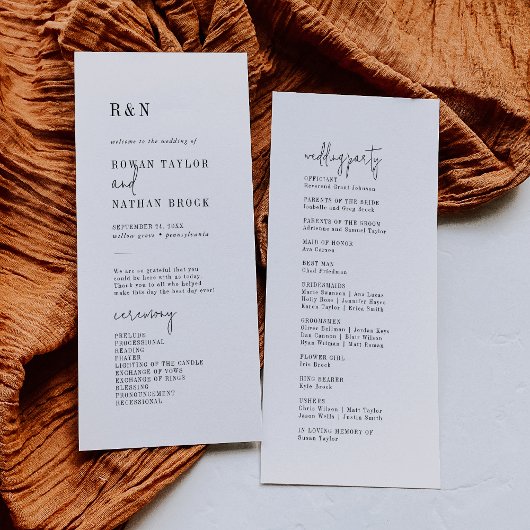 R&N
welcome to the wedding of
ROWAN TAYLOR
and
NATHAN BROCK
SEPTEMBER 24, 20XX
willow grove • pennsylvania
We are so grateful that you
could be here with us today.
Thank you to all who helped
make this day the best day ever!
ceremony
PRELUDE
PROCESSIONAL
READING
PRAYER
LIGHTING OF THE CANDLE
EXCHANGE OF VOWS
EXCHANGE OF RINGS
BLESSING
PRONOUNCEMENT
RECESSIONAL
wedding party
OFFICIANT
Reverend Grant Johnson
PARENTS OF THE BRIDE
Isabelle and Greg
PARENTS OF THE GROOM
Adrienne and Samuel Taylor
MAID OF HONOR
Ava Carson
BEST MAN
Chad Friedman
BRIDESMAIDS
Marie Swansen | Ana Lucas
Holly Ross | Jennifer Hayes
Karen Taylor | Erica Smith
GROOMSMEN
Oliver Bellman | Jordan Keys
Dan Canning | Blatt Wilson
Ryan Weltman | Matt Roman
FLOWER GIRL
Iris Brock
RING BEARER
Kyle Brock
USHERS
Chris Wilson | Matt Taylor
Jason Wells | Justin Smith
IN LOVING MEMORY OF
Susan Taylor